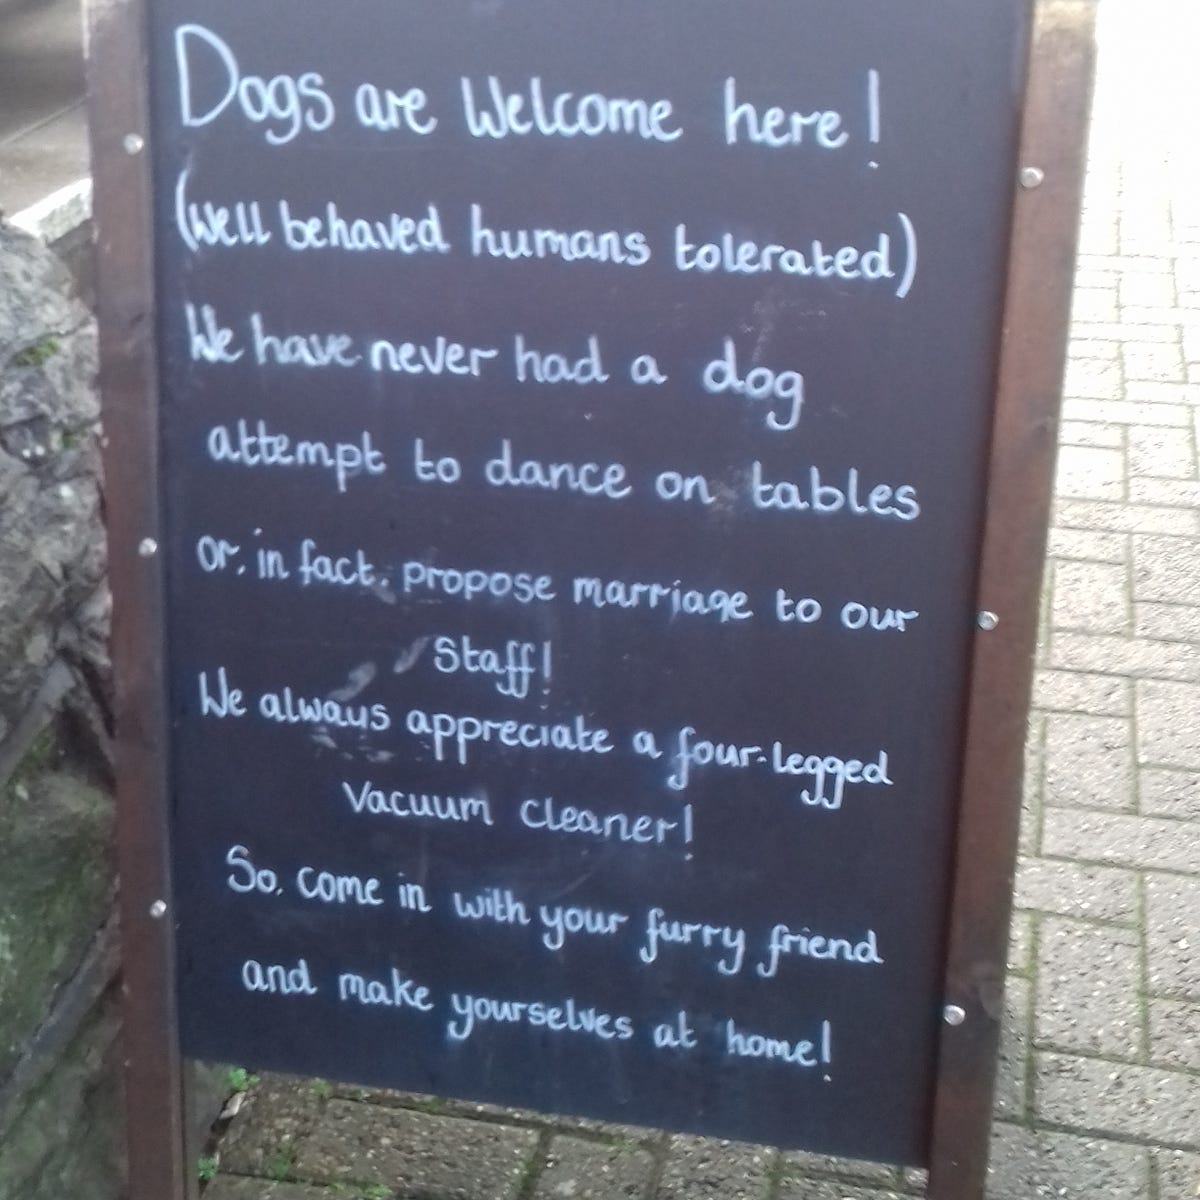 Dogs are Welcome here!
(Well behaved humans tolerated)
We have never had a dog
attempt to dance on tables
or, in fact, propose marriage to our
Staff!
We always appreciate a four-legged
Vacuum cleaner!
So, come in with your furry friend
and make yourselves at home!